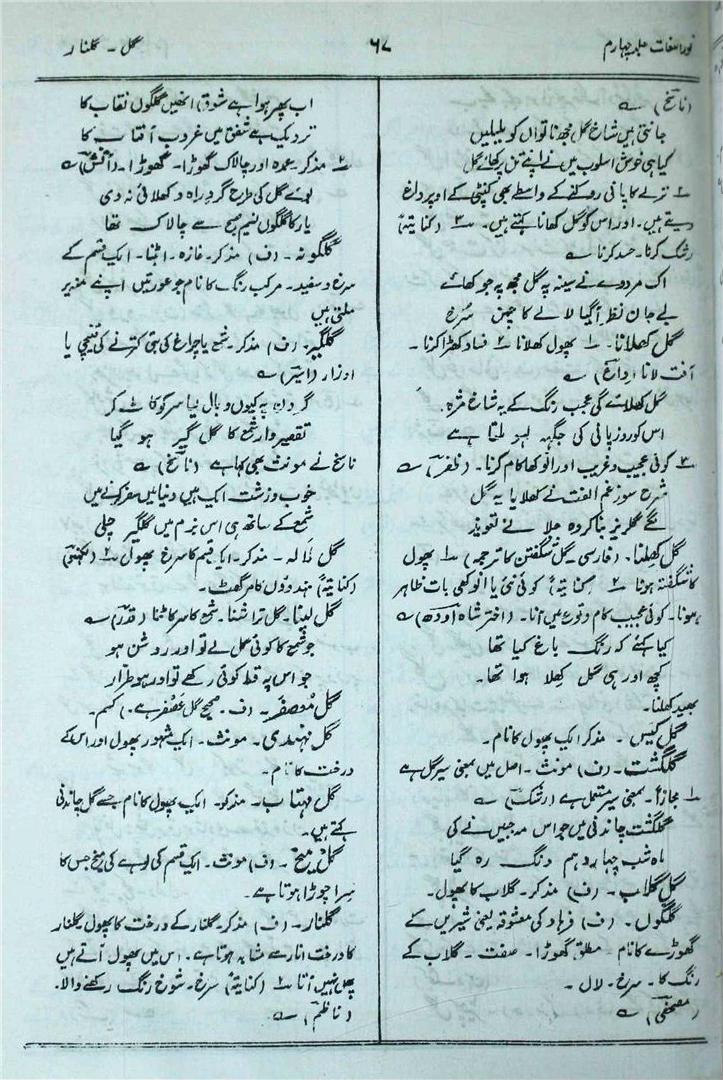 نور اللغات جلد چہارم
۶۷
گل ۔ گلنار
(ناسخ) ؎
جانتی ہیں شاخ گل مجھ ناتواں کو بلبلیں
کیا ہی خوش اسلوب میں نے اپنے تن پر کھائے گل
۲ نزلے کا پانی روکنے کے واسطے بھی کنپٹی کے اوپر داغ
دیتے ہیں۔ اور اس کو گل کھانا کہتے ہیں۔ ۳ (کنایۃً)
رشک کرنا۔ حسد کرنا ؎
اک مردوے نے سینہ پہ گل مجھ پہ جو کھائے
بے جان نظر آگیا لالے کا چمن سُرخ
گل کھلانا۔ ۱ پھول کھلانا ۲ فساد کھڑا کرنا۔
آفت لانا (داغ) ؎
گل کھلائے گی عجب رنگ کے یہ شاخ مژہ
اس کو روز پانی کی جگہہ لہو ملتا ہے
۳ کوئی عجیب و غریب اور انوکھا کام کرنا۔ (ظفر) ؎
شرح سوز غم الفت نے کھلایا یہ گل
گل کھِلنا۔ (فارسی ۔ گل شگفتن کا ترجمہ) ۱ پھول
کا شگفتہ ہونا ۲ (کنایۃً) کوئی نئی یا انوکھی بات ظاہر
ہونا۔ کوئی عجیب کام وقوع میں آنا۔ (اختر شاہ اودھ) ؎
کیا کہئے کہ رنگ باغ کیا تھا
کچھ اور ہی گل کھلا ہوا تھا۔
بھید کھلنا۔
گل کیس ۔ مذکر ایک پھول کا نام۔
گلگشت۔ (ف) مونث۔ اصل میں بمعنی سیر گل ہے
۱ مجازاً۔ بمعنی سیر مستعمل ہے (رشک) ؎
گلگشت چاندنی میں جو اس مہ جبیں نے کی
ماہ شب چہاردہم دنگ رہ گیا
گل گلاب۔ (ف) مذکر۔ گلاب کا پھول۔
گلگوں۔ (ف) فرہاد کی معشوقہ یعنی شیریں کے
گھوڑے کا نام۔ مطلق گھوڑا۔ صفت۔ گلاب کے
رنگ کا۔ سرخ۔ لال۔
(مصحفی) ؎
اب پھر ہوا ہے شوق انھیں گلگوں نقاب کا
نزدیک ہے شفق میں غروب آفتاب کا
۲ مذکر۔ عمدہ اور چالاک گھوڑا۔ گھوڑا۔ (آتش) ؎
بوئے گل کی طرح گرد راہ دکھلائی نہ دی
یار کا گلگوں نسیم صبح سے چالاک تھا
گلگونہ۔ (ف) مذکر۔ غازہ۔ ابٹنا۔ ایک قسم کے
سرخ و سفید۔ مرکب رنگ کا نام جو عورتیں اپنے منھ پر
ملتی ہیں
گلگیر۔ (ف) مذکر۔ شمع یا چراغ کی بتی کترنے کی قینچی یا
اوزار (اسیر) ؎
گردن پہ کیوں وبال لیا سر کو کاٹ کر
تقصیر وار شمع کا گل گیر ہو گیا
ناسخ نے مونث بھی کہا ہے (ناسخ) ؎
خوب و زشت ایک ہیں دنیا میں سفر کرنے میں
شمع کے ساتھ ہی اس بزم میں گلگیر چلی
گل لالہ۔ مذکر۔ ایک قسم کا سرخ پھول ۲ (لکھنؤ)
(کنایۃً) ہندوؤں کا مرگھٹ۔
گل لینا۔ گل تراشنا۔ شمع کا سر کاٹنا (قدر) ؎
جو شمع کا کوئی گل لے تو اور روشن ہو
جو اس پہ قط کوئی رکھے تو اور ہو طرار
گل مُعصفر۔ (ف۔ صحیح گل عُصفر ہے۔) کسم۔
گل مہندی۔ مونث۔ ایک مشہور پھول اور اس کے
درخت کا نام۔
گل مہتاب۔ مذکر۔ ایک پھول کا نام جسے گل چاندنی
کہتے ہیں۔
گل میخ۔ (ف) مونث۔ ایک قسم کی لوہے کی میخ جس کا
سِرا چوڑا ہوتا ہے۔
گلنار۔ (ف) مذکر۔ گلنار کے درخت کا پھول۔ گلنار
کا درخت انار سے مشابہ ہوتا ہے۔ اس میں پھول آتے ہیں
پھل نہیں آتا ۲ (کنایۃً) سرخ۔ شوخ رنگ رکھنے والا۔
(ناظم) ؎